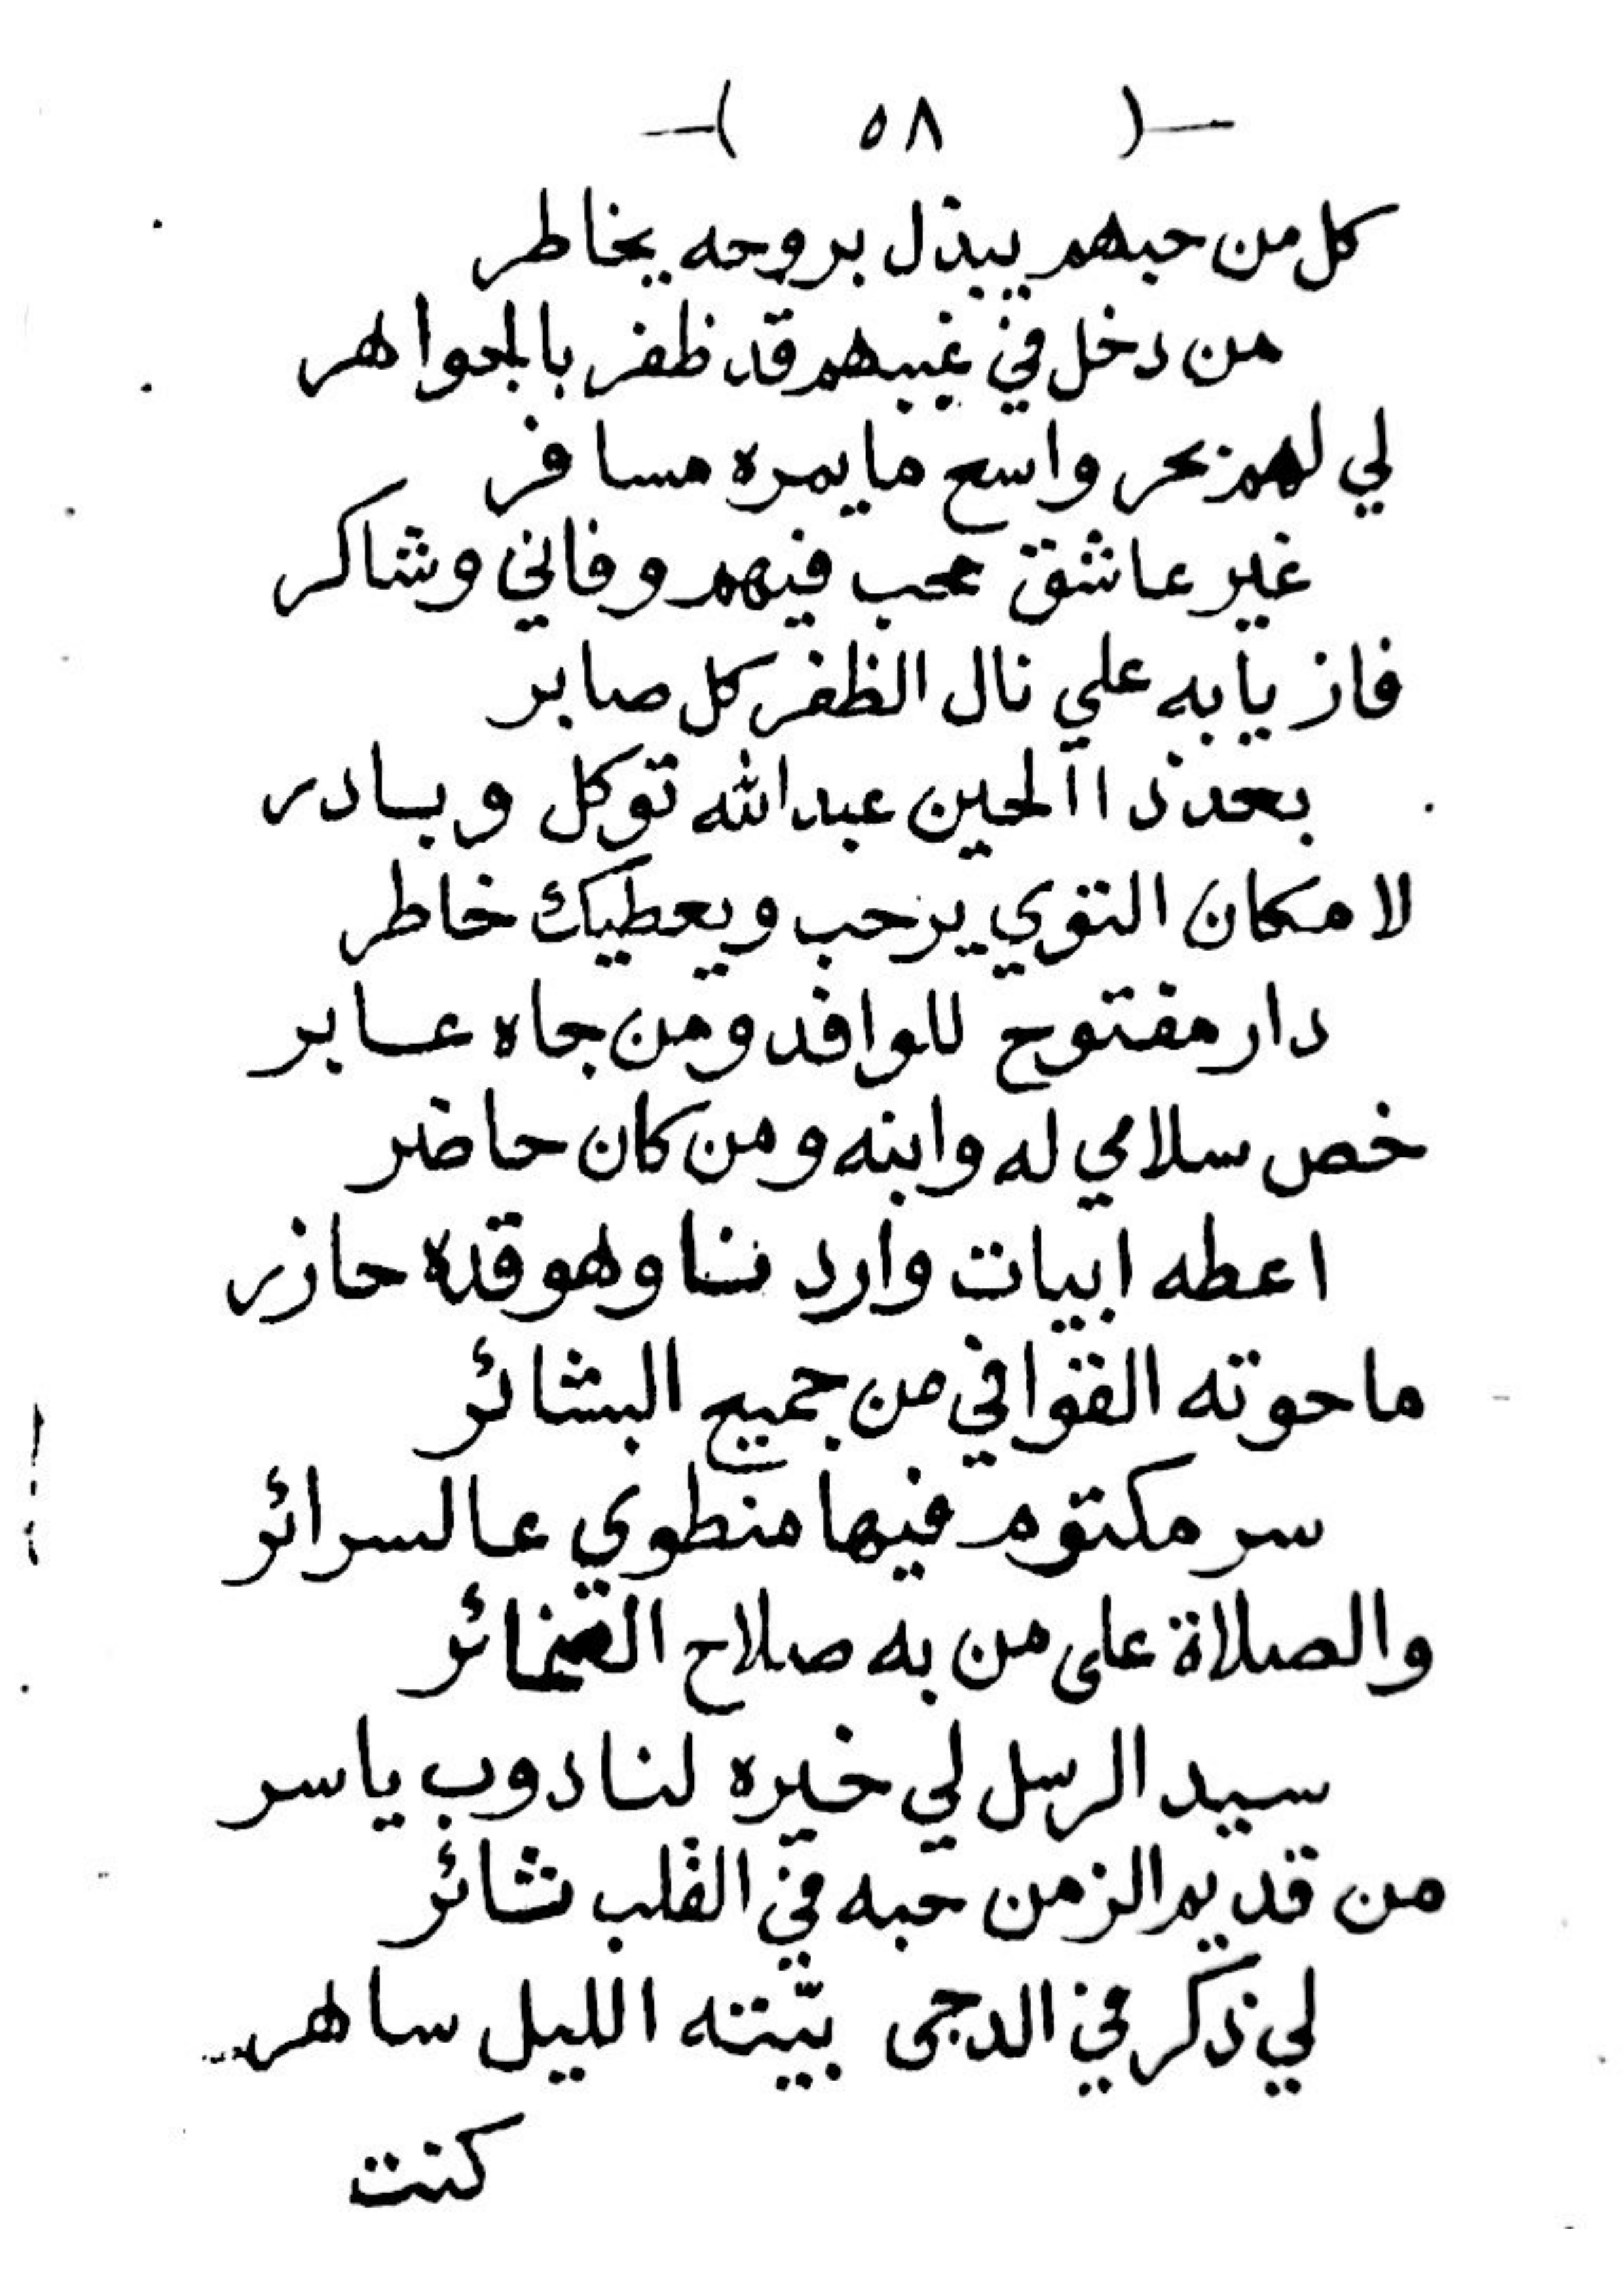 -( ٥٨ )-
كل من حبهم يبذل بروحه يخاطر
من دخل في غيبهم قد ظفر بالجواهر
لي لهم بحر واسع ما يمره مسافر
غير عاشق محب فيهم وفاني وشاكر
فاز يابه علي نال الظفر كل صابر
بعد ذا الحين عبدالله توكل وبادر
لا مكان التوي يرحب ويعطيك خاطر
دار مفتوح للوافد ومن جاه عابر
خص سلامي له وابنه ومن كان حاضر
اعطه ابيات وارد نا وهو قده حازر
ما حوته القوافي من جميع البشائر
سر مكتوم فيها منطوي عالسرائر
والصلاة على من به صلاح الضمائر
سيد الرسل لي خيره لنا دوب ياسر
من قديم الزمن حبه في القلب نشائر
لي ذكر في الدجى بيّته الليل ساهر
كنت